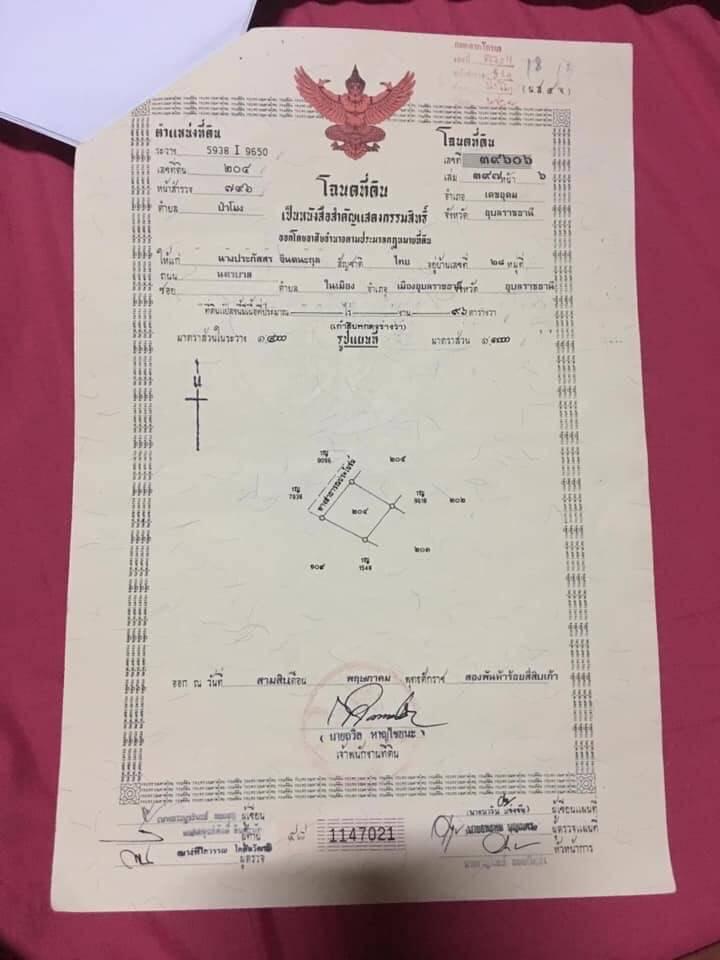 (น.ส.๔ จ.)
ตำแหน่งที่ดิน
ระวาง 5938 I 9650
เลขที่ดิน ๒๐๔
หน้าสำรวจ ๗๙๖
ตำบล ป่าโมง
โฉนดที่ดิน
เลขที่ ๓๙๖๐๖
เล่ม ๓๙๗ หน้า ๖
อำเภอ เดชอุดม
จังหวัด อุบลราชธานี
โฉนดที่ดิน
เป็นหนังสือสำคัญแสดงกรรมสิทธิ์
ออกโดยอาศัยอำนาจตามประมวลกฎหมายที่ดิน
ให้แก่ นางประภัสสร จินตนะกุล สัญชาติ ไทย อยู่บ้านเลขที่ ๒๘ หมู่ที่
ถนน นคาบาล
ซอย ตำบล ในเมือง อำเภอ เมืองอุบลราชธานี จังหวัด อุบลราชธานี
ที่ดินแปลงนี้มีเนื้อที่ประมาณ ไร่ งาน ๙๖ ตารางวา
(เก้าสิบหกตารางวา)
มาตราส่วนในระวาง ๑:๔๐๐๐ รูปแผนที่ มาตราส่วน ๑:๑๐๐๐
น
ทางสาธารณประโยชน์
๒๐๕
๒๐๔
๒๐๒
๒๐๓
๑๐๙
ออก ณ วันที่ สามสิบ เดือน พฤษภาคม พุทธศักราช สองพันห้าร้อยสี่สิบเก้า
เจ้าพนักงานที่ดิน
ผู้เขียน
ผู้ตรวจ
๔๘ 1147021
ผู้เขียนแผนที่
ผู้ตรวจแผนที่
หัวหน้าการ